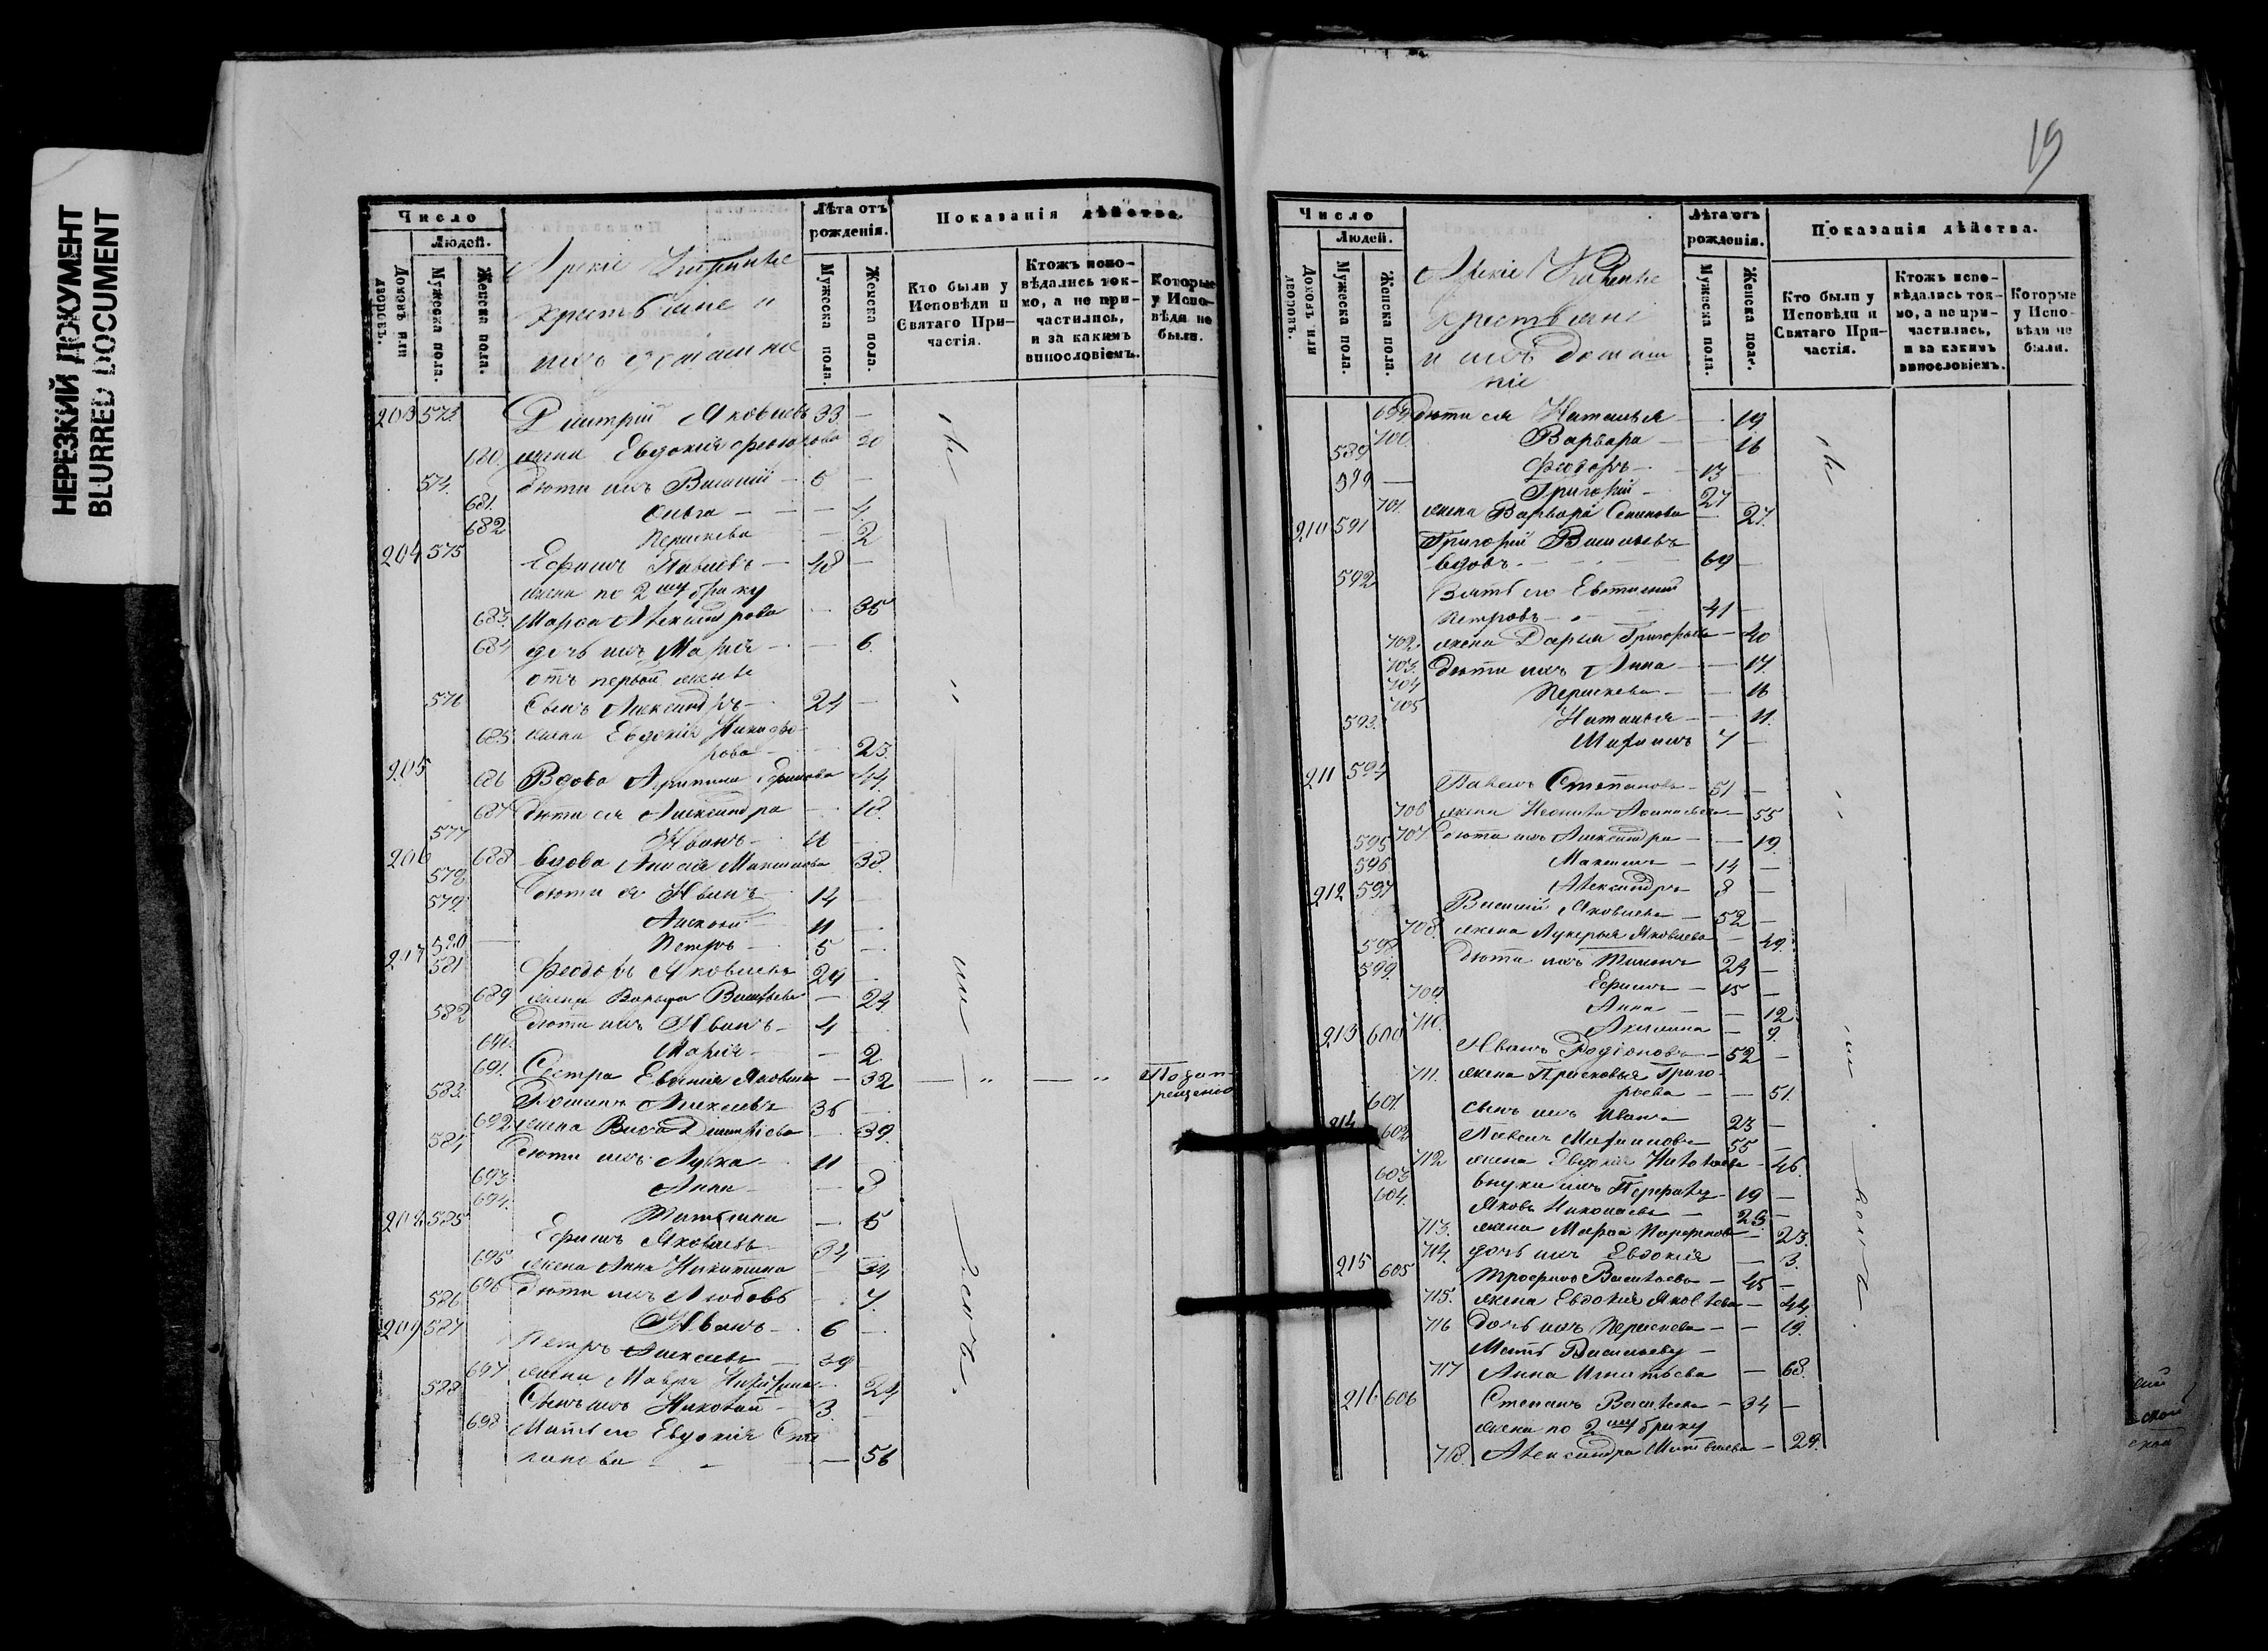 НЕРЕЗКИЙ ДОКУМЕНТ
BLURRED DOCUMENT
Число
Людей.
Домовъ или дворовъ.
Мужеска пола.
Женска пола.
крестьяне и
ихъ домашніе
Лѣта отъ рожденія.
Мужеска пола.
Женска пола.
Показанія дѣйства.
Кто были у Исповѣди и Святаго При-частія.
Ктожъ испо-вѣдались ток-мо, а не при-частились, и за какимъ винословіемъ.
Которые у Испо-вѣди не были.
203 573 Дмитрій Яковлевъ 33 —
680. жена Евдокія 30
574. дѣти ихъ Василій — 6 —
681. Ольга — — — 4.
682 Пераскева — 2
204 575 Ефимъ Павловъ — 48 —
жена по 2му браку
683. Марѳа Александрова — 35
684 дочь ихъ Марія — — 6.
отъ первой жены
576 Сынъ Александръ — 24 —
685. жена Евдокія Никифо-
рова — 23.
205 686 Вдова Ефимова 44.
687 дѣти ея Александра — 18.
577 Иванъ — 11 —
206 688 вдова Анисія Максимова 38.
578. дѣти ея Иванъ — 14 —
579. Алексѣй — 11 —
580 Петръ — 5 —
207 581 Феодоръ Яковлевъ 29 —
689 жена Варвара Васильева — 24.
582 дѣти ихъ Иванъ — 4 —
690. Марія — — 2.
691. Сестра Евгенія Яковлева — 32 — " — " По
583. Романъ Алексѣевъ 36 —
692 жена Васса Дмитріева — 39.
584 дѣти ихъ Лука — 11
693 Анна — — 8
694. Татьяна — 5
208 585 Ефимъ Яковлевъ 34
695 жена Анна Никитина 34
696 дѣти ихъ Любовь — 7.
586 Иванъ — 6 —
209 587 Петръ Алексѣевъ — 39 —
697 жена Мавра 24
588 Сынъ ихъ Николай — 3. —
698 Мать его Евдокія Сте
панова — — — 56
19
Число
Людей.
Домовъ или дворовъ.
Мужеска пола.
Женска пола.
крестьяне
и ихъ домаш
ніе
Лѣта отъ рожденія.
Мужеска пола.
Женска пола.
Показанія дѣйства.
Кто были у Исповѣди и Святаго При-частія.
Ктожъ испо-вѣдались ток-мо, а не при-частились, и за какимъ винословіемъ.
Которые у Испо-вѣди не были.
699 дѣти ея Наталья — 19
700. Варвара — 16
589 Феодоръ — 13 —
590 — Григорій — 27 —
701. жена Варвара Семенова — 27.
210 591 Григорій Васильевъ
вдовъ — 69 —
592 Зять его Евтихій
Петровъ — 41 —
702. жена Дарья Григорьева — 40
703. дѣти ихъ Анна — — 17.
704 Пераскева — — 16
705 Наталья — — 11.
593. 7 —
211 594 Павелъ Степановъ — 51 —
706 жена Аѳанасьева — 55
707 дѣти ихъ Александра — — 19.
595 Максимъ — 14 —
596. Александръ 8 —
212 597 Василій Яковлевъ — 52 —
708. жена Лукерья Яковлева — 49.
598 дѣти ихъ 24 —
599. Ефимъ — 15 —
709. Анна — — 12.
710. Акилина — 9.
213 600 Иванъ Родіоновъ — 52 —
711. жена Прасковья Григо-
рьева — — 51.
601. сынъ ихъ Иванъ 23 —
214 602 Павелъ 55 —
712 жена Евдокія — 46.
603 внуки ихъ 19 —
604. Яковъ Николаевъ — 23. —
713. жена Марѳа — 23.
714. дочь ихъ Евдокія — 3.
215 605 Трофимъ Васильевъ — 45 —
715. жена Евдокія Яковлева — 44.
716 дочь ихъ Пераскева — — 19.
Мать Васильеву —
717 Анна Игнатьева — 68.
216 606 Степанъ Васильевъ — 34 —
жена по 2му браку
718. Александра Матвѣева — 29.